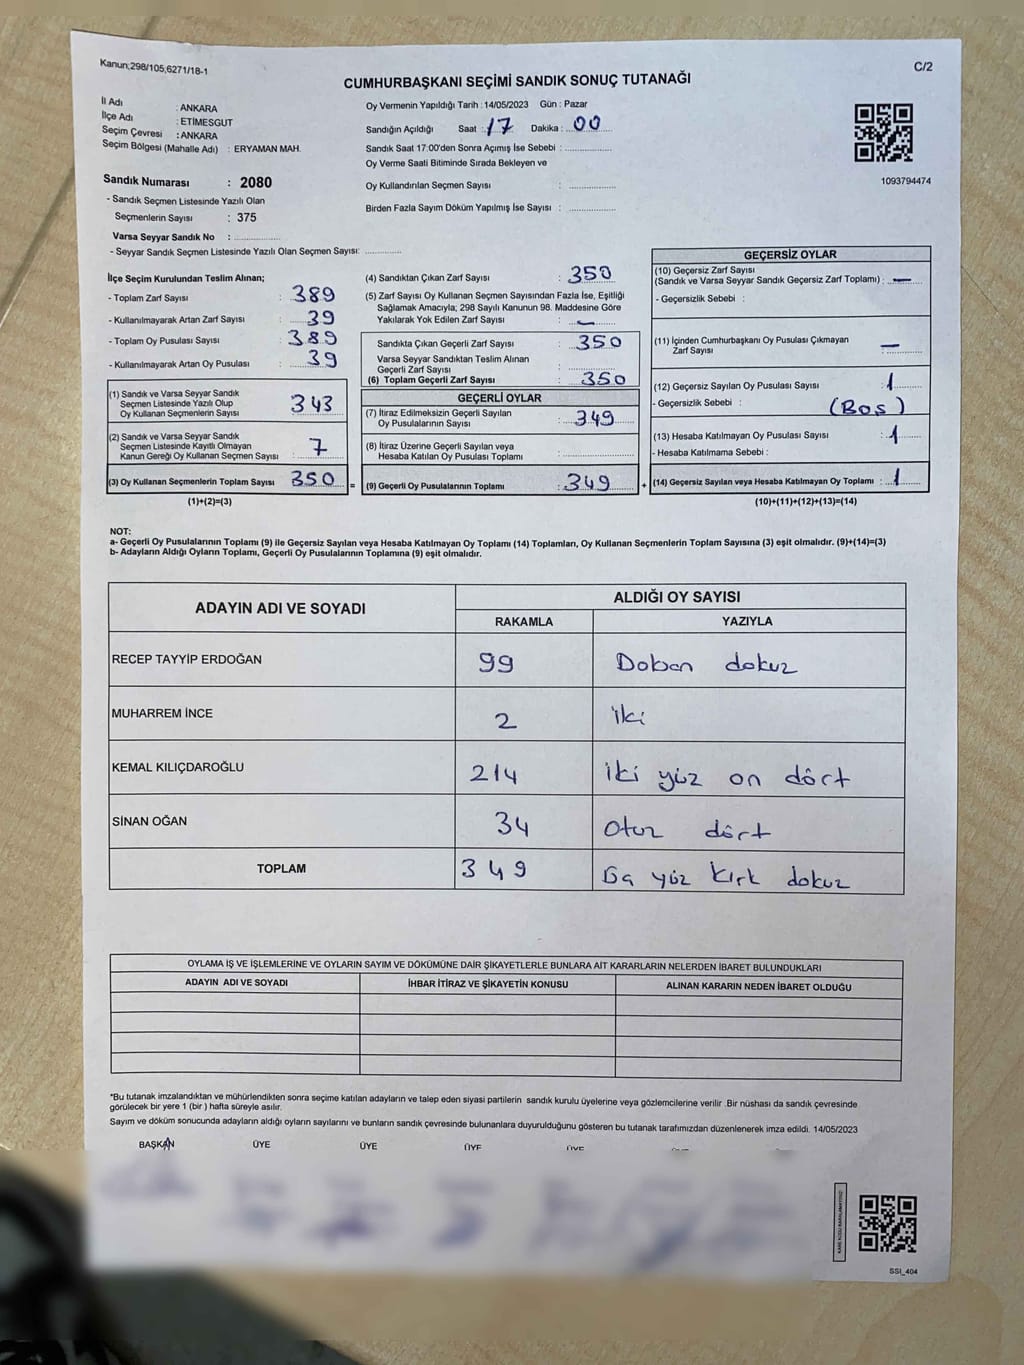 Kanun;298/105;6271/18-1
C/2
CUMHURBAŞKANI SEÇİMİ SANDIK SONUÇ TUTANAĞI
İl Adı : ANKARA
İlçe Adı : ETİMESGUT
Seçim Çevresi : ANKARA
Seçim Bölgesi (Mahalle Adı) : ERYAMAN MAH.
Sandık Numarası : 2080
- Sandık Seçmen Listesinde Yazılı Olan
Seçmenlerin Sayısı : 375
Varsa Seyyar Sandık No :
- Seyyar Sandık Seçmen Listesinde Yazılı Olan Seçmen Sayısı:
Oy Vermenin Yapıldığı Tarih : 14/05/2023 Gün : Pazar
Sandığın Açıldığı Saat : 17 Dakika : 00
Sandık Saat 17:00'den Sonra Açımış İse Sebebi :
Oy Verme Saati Bitiminde Sırada Bekleyen ve
Oy Kullandırılan Seçmen Sayısı :
Birden Fazla Sayım Döküm Yapılmış İse Sayısı :
1093794474
İlçe Seçim Kurulundan Teslim Alınan;
- Toplam Zarf Sayısı : 389
- Kullanılmayarak Artan Zarf Sayısı : 39
- Toplam Oy Pusulası Sayısı : 389
- Kullanılmayarak Artan Oy Pusulası : 39
(1) Sandık ve Varsa Seyyar Sandık
Seçmen Listesinde Yazılı Olup
Oy Kullanan Seçmenlerin Sayısı : 343
(2) Sandık ve Varsa Seyyar Sandık
Seçmen Listesinde Kayıtlı Olmayan
Kanun Gereği Oy Kullanan Seçmen Sayısı : 7
(3) Oy Kullanan Seçmenlerin Toplam Sayısı 350
(1)+(2)=(3)
=
(4) Sandıktan Çıkan Zarf Sayısı : 350
(5) Zarf Sayısı Oy Kullanan Seçmen Sayısından Fazla İse, Eşitliği
Sağlamak Amacıyla; 298 Sayılı Kanunun 98. Maddesine Göre
Yakılarak Yok Edilen Zarf Sayısı : -
Sandıkta Çıkan Geçerli Zarf Sayısı : 350
Varsa Seyyar Sandıktan Teslim Alınan
Geçerli Zarf Sayısı :
(6) Toplam Geçerli Zarf Sayısı : 350
GEÇERLİ OYLAR
(7) İtiraz Edilmeksizin Geçerli Sayılan
Oy Pusulalarının Sayısı : 349
(8) İtiraz Üzerine Geçerli Sayılan veya
Hesaba Katılan Oy Pusulası Toplamı :
(9) Geçerli Oy Pusulalarının Toplamı : 349
+
GEÇERSİZ OYLAR
(10) Geçersiz Zarf Sayısı
(Sandık ve Varsa Seyyar Sandık Geçersiz Zarf Toplamı) : -
- Geçersizlik Sebebi :
(11) İçinden Cumhurbaşkanı Oy Pusulası Çıkmayan
Zarf Sayısı : -
(12) Geçersiz Sayılan Oy Pusulası Sayısı : 1
- Geçersizlik Sebebi : (Boş)
(13) Hesaba Katılmayan Oy Pusulası Sayısı : 1
- Hesaba Katılmama Sebebi :
(14) Geçersiz Sayılan veya Hesaba Katılmayan Oy Toplamı : 1
(10)+(11)+(12)+(13)=(14)
NOT:
a- Geçerli Oy Pusulalarının Toplamı (9) ile Geçersiz Sayılan veya Hesaba Katılmayan Oy Toplamı (14) Toplamları, Oy Kullanan Seçmenlerin Toplam Sayısına (3) eşit olmalıdır. (9)+(14)=(3)
b- Adayların Aldığı Oyların Toplamı, Geçerli Oy Pusulalarının Toplamına (9) eşit olmalıdır.
ADAYIN ADI VE SOYADI ALDIĞI OY SAYISI
RAKAMLA YAZIYLA
RECEP TAYYİP ERDOĞAN 99 Doban dokuz
MUHARREM İNCE 2 iki
KEMAL KILIÇDAROĞLU 214 iki yüz on dört
SİNAN OĞAN 34 otuz dört
TOPLAM 349 yüz kırk dokuz
OYLAMA İŞ VE İŞLEMLERİNE VE OYLARIN SAYIM VE DÖKÜMÜNE DAİR ŞİKAYETLERLE BUNLARA AİT KARARLARIN NELERDEN İBARET BULUNDUKLARI
ADAYIN ADI VE SOYADI İHBAR İTİRAZ VE ŞİKAYETİN KONUSU ALINAN KARARIN NEDEN İBARET OLDUĞU
*Bu tutanak imzalandıktan ve mühürlendikten sonra seçime katılan adayların ve talep eden siyasi partilerin sandık kurulu üyelerine veya gözlemcilerine verilir .Bir nüshası da sandık çevresinde
görülecek bir yere 1 (bir ) hafta süreyle asılır.
Sayım ve döküm sonucunda adayların aldığı oyların sayılarını ve bunların sandık çevresinde bulunanlara duyurulduğunu gösteren bu tutanak tarafımızdan düzenlenerek imza edildi. 14/05/2023
BAŞKAN ÜYE ÜYE ÜYE ÜYE
SSI_404